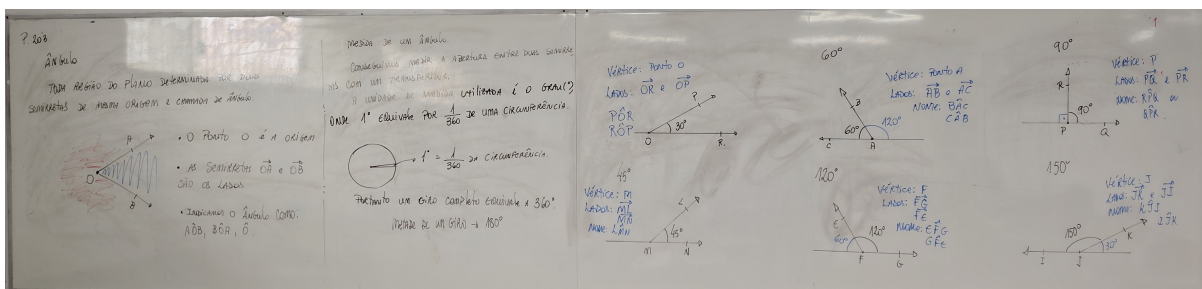 P. 203
ÂNGULO
TODA REGIÃO DO PLANO DETERMINADA POR DUAS
SEMIRRETAS DE MESMA ORIGEM É CHAMADA DE ÂNGULO
A
O
B
• O PONTO O É A ORIGEM
• AS SEMIRRETAS OA e OB
SÃO OS LADOS
• INDICAMOS O ÂNGULO COMO:
AÔB, BÔA, Ô.
MEDIDA DE UM ÂNGULO
CONSEGUIMOS MEDIR A ABERTURA ENTRE DUAS SEMIRRE
TAS COM UM TRANSFERIDOR.
A UNIDADE DE MEDIDA UTILIZADA É O GRAU(°)
ONDE 1° EQUIVALE POR 1/360 DE UMA CIRCUNFERÊNCIA.
1° = 1/360 DA CIRCUNFERÊNCIA.
PORTANTO UM GIRO COMPLETO EQUIVALE A 360°
METADE DE UM GIRO → 180°
VÉRTICE: PONTO O
LADOS: OR e OP
PÔR
RÔP
P
30°
O
R
45°
VÉRTICE: M
LADOS: ML
MN
NOME: LM̂N
L
45°
M
N
60°
VÉRTICE: PONTO A
LADOS: AB e AC
NOME: BÂC
CÂB
B
60°
120°
C
A
120°
VÉRTICE: F
LADOS: FG
FE
NOME: EF̂G
GF̂E
E
60°
120°
F
G
90°
VÉRTICE: P
LADOS: PQ e PR
NOME: RP̂Q ou
QP̂R
R
90°
P
Q
150°
VÉRTICE: J
LADOS: JK e JI
NOME: KĴI
IĴK
150°
K
30°
I
J